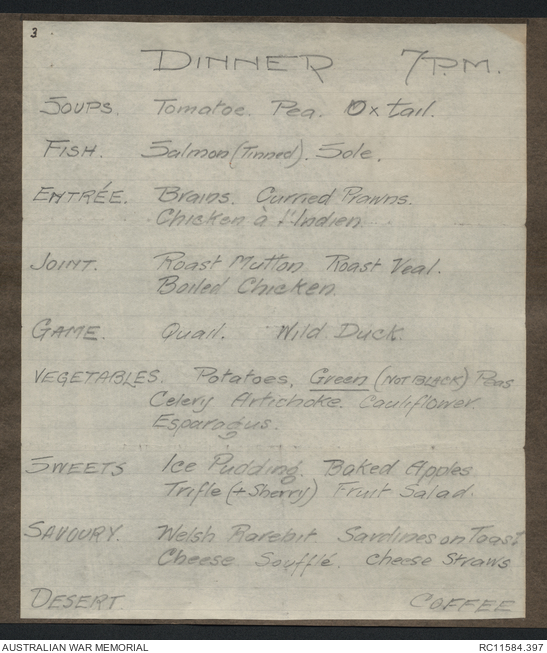 3
DINNER 7P.M.
SOUPS. Tomatoe. Pea. Oxtail.
FISH. Salmon (Tinned). Sole.
ENTRÉE. Brains. Curried Prawns.
Chicken à l'Indien
JOINT. Roast Mutton Roast Veal.
Boiled Chicken.
GAME. Quail. Wild Duck.
VEGETABLES. Potatoes, Green (NOT BLACK) Peas
Celery Artichoke. Cauliflower.
Esparagus.
SWEETS Ice Pudding. Baked Apples.
Trifle (+ Sherry) Fruit Salad.
SAVOURY. Welsh Rarebit. Sardines on Toast
Cheese Soufflé. Cheese Straws
DESERT. COFFEE
AUSTRALIAN WAR MEMORIAL RC11584.397